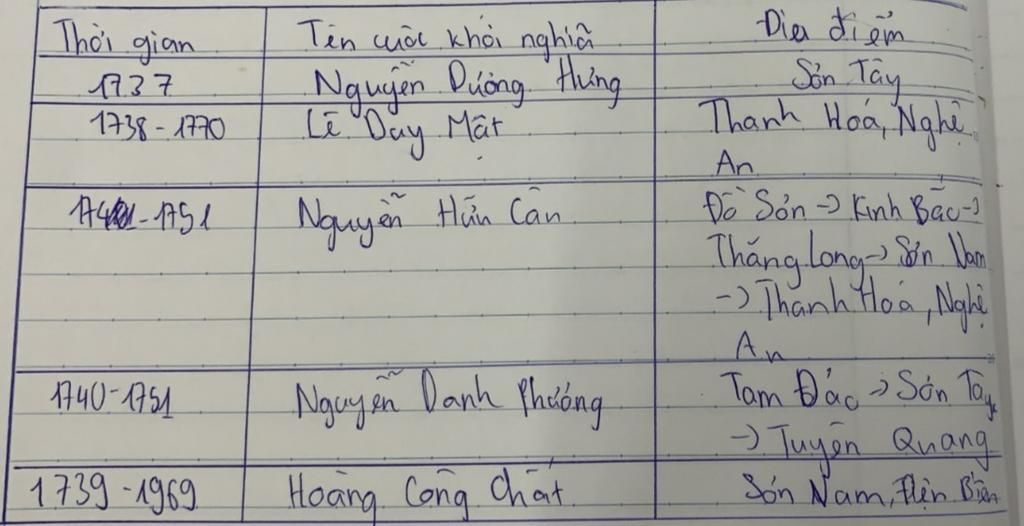 Thời gian Tên cuộc khởi nghĩa Địa điểm
1737 Nguyễn Dương Hưng Sơn Tây
1738 - 1770 Lê Duy Mật Thanh Hoá, Nghệ
An
1741 - 1751 Nguyễn Hữu Cần Đồ Sơn → Kinh Bắc →
Thăng Long → Sơn Nam
→ Thanh Hoá, Nghệ
An
1740 - 1751 Nguyễn Danh Phương Tam Đảo → Sơn Tây
→ Tuyên Quang
1739 - 1969 Hoàng Công Chất Sơn Nam, Điện Biên